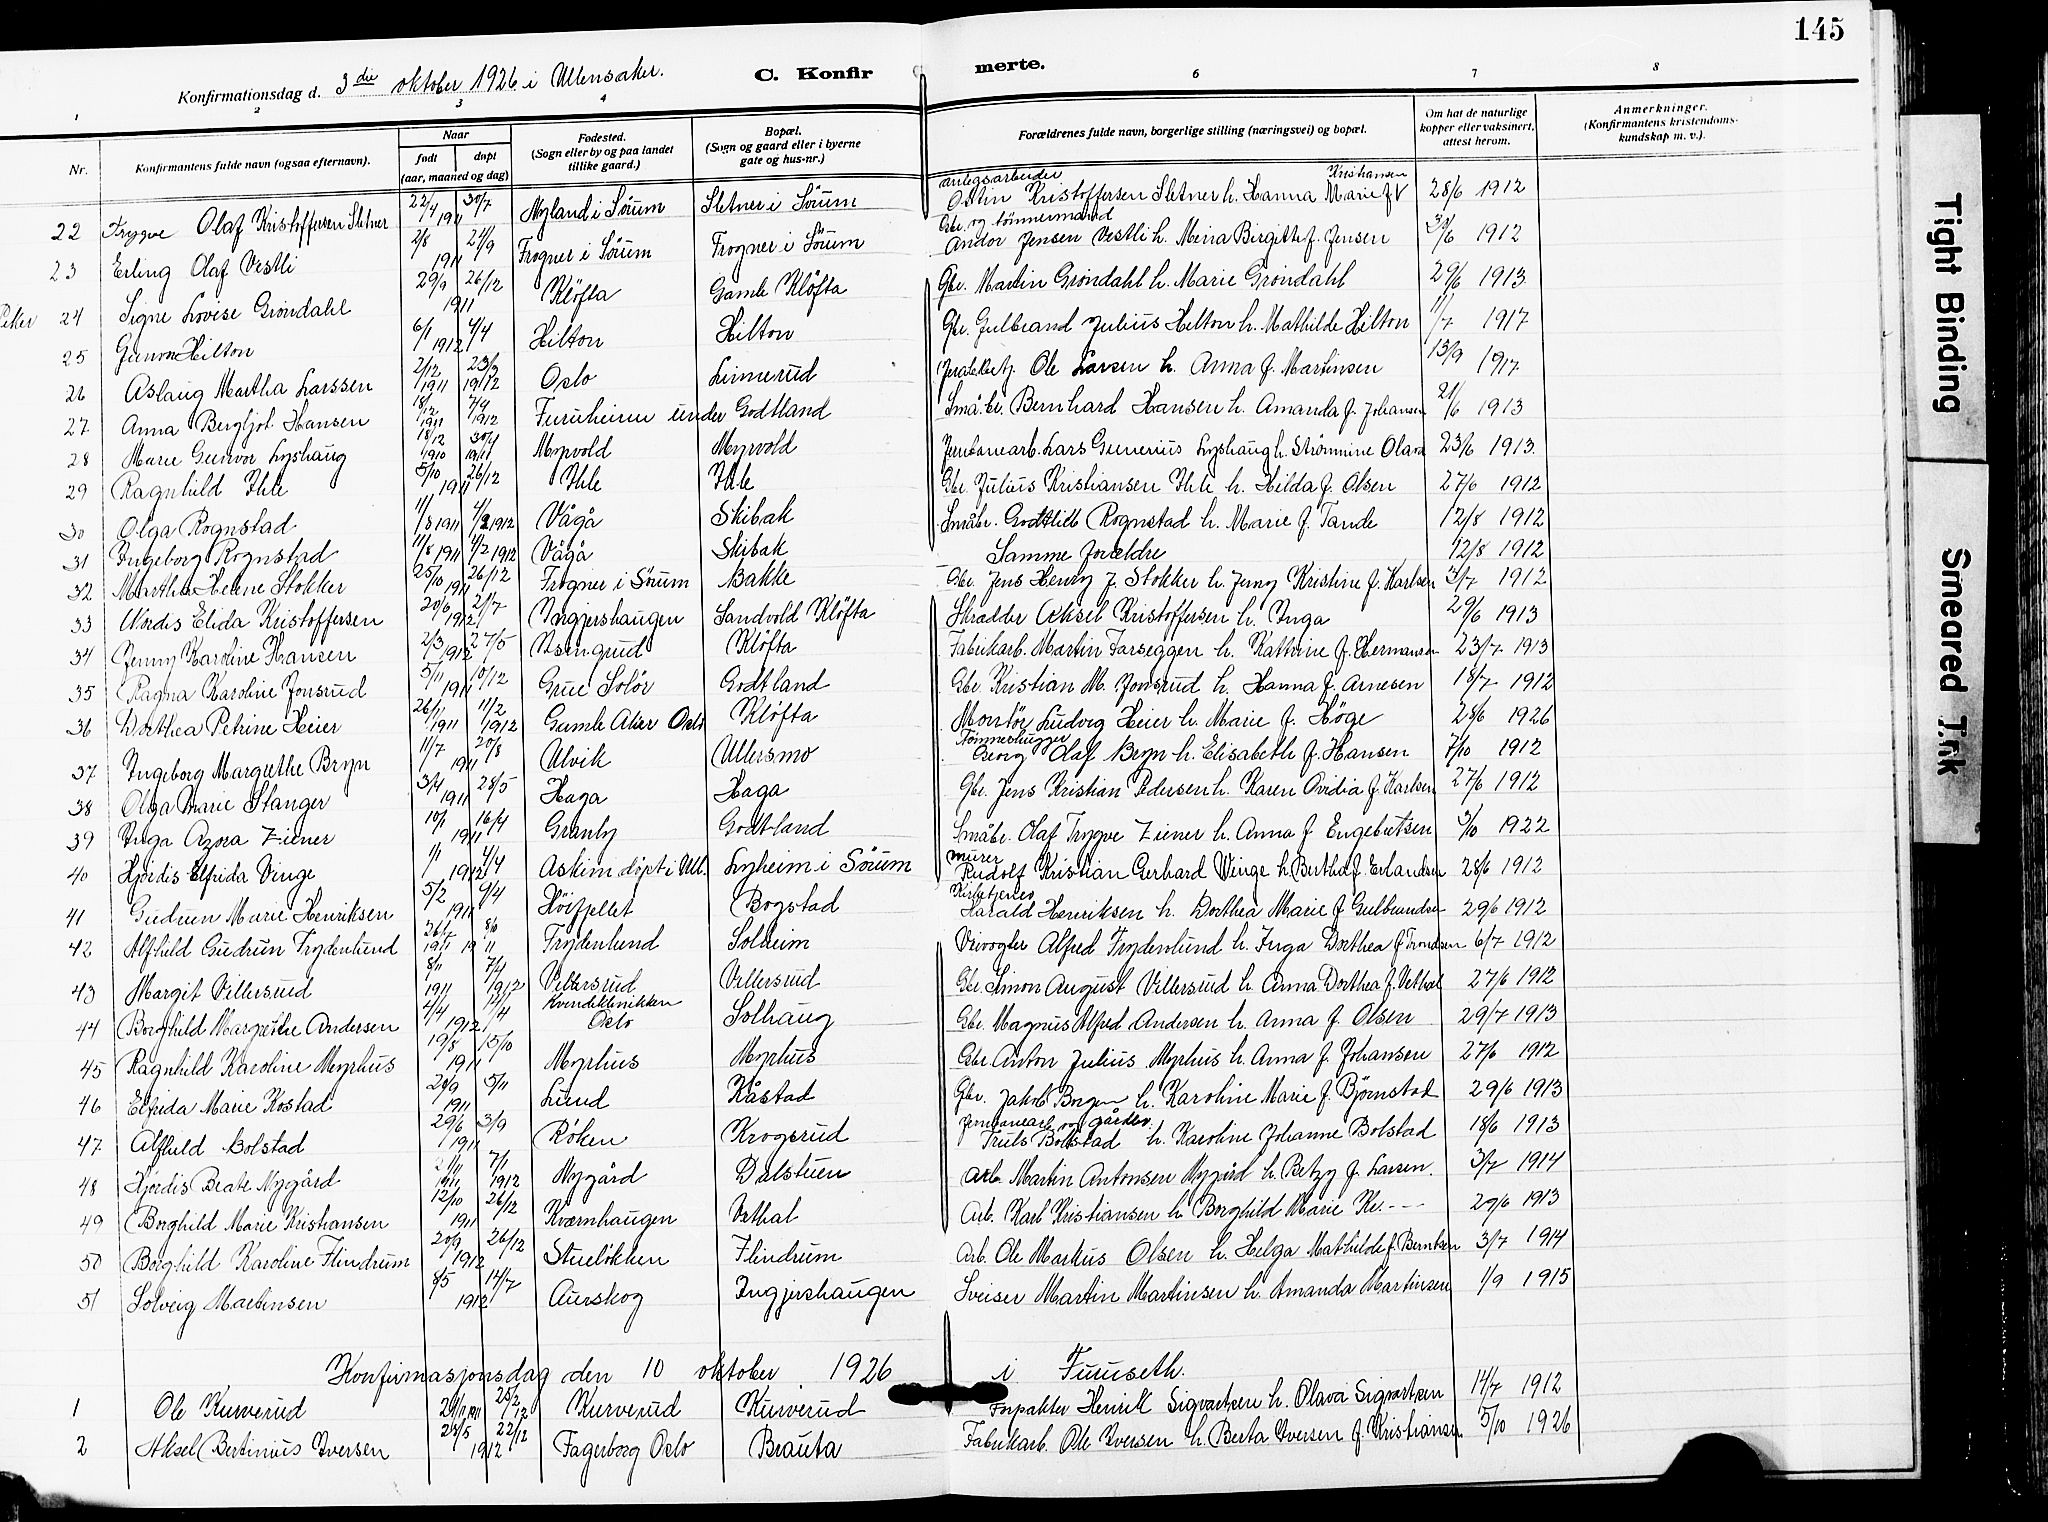 145
C. Konfirmerte.
Konfirmationsdag d. 3die oktober 1926 i Ullensaker.
1 2 3 4 6 7 8
Nr. Konfirmantens fulde navn (ogsaa efternavn). Naar født døpt (aar, maaned og dag) Fødested. (Sogn eller by og paa landet tillike gaard.) Bopæl. (Sogn og gaard eller i byerne gate og hus-nr.) Forældrenes fulde navn, borgerlige stilling (næringsvei) og bopæl. Om hat de naturlige kopper eller vaksinert, attest herom. Anmerkninger. (Konfirmantens kristendomskundskap m. v.).
22 Trygve Olaf Kristoffersen Sletner 22/4 1911 30/7 Nyland i Sörum Sletner i Sörum anlegsarbeider Kristoffersen Sletner h. Hanna Marie f. Kristiansen 28/6 1912
23 Erling Olaf Vestli 2/8 1911 24/9 Frogner i Sörum Frogner i Sörum Gbr. og tömmermand Andor Jensen Vestli h. Mina Birgitte f. Jensen 1912
24 Signe Lovise Gröndahl 29/9 1911 26/12 Klöfta Gamle Klöfta Gbr. Martin Gröndahl h. Marie Gröndahl 29/6 1913
25 Gunvor Hilton 6/1 1912 4/4 Hilton Hilton Gbr. Gulbrand Julius Hilton h. Mathilde Hilton 1/7 1917
26 Aslaug Martha Larssen 2/12 1911 1912 Oslo Limerud Ole Larsen h. Anna f. Martinsen 13/9 1917
27 Anna Bergljot Hansen 18/12 1911 7/4 1912 Furuheim under Godtland Godtland Småbr. Bernhard Hansen h. Amanda f. Johansen 21/6 1913
28 Marie Gunvor Lyshaug 18/12 1910 30/4 1911 Myrvold Myrvold Jernbanearb. Lars Gunerius Lyshaug h. Strömine Olava 23/6 1913
29 Ragnhild Ihle 5/10 1911 26/12 Ihle Ihle Gbr. Julius Kristiansen Ihle h. Hilda f. Olsen 27/6 1912
30 Olga Rognstad 11/8 1911 4/2 1912 Vågå Skibak Småbr. Godtlieb Rognstad h. Marie f. Tande 12/8 1912
31 Ingeborg Rognstad 11/8 1911 4/2 1912 Vågå Skibak Samme foreldre 12/8 1912
32 Martha Helene Stokker 25/10 1911 26/12 Frogner i Sörum Bakke Gbr. Jens Henry J. Stokker h. Jenny Kristine f. Karlsen 3/7 1912
33 Nordis Elida Kristoffersen 20/6 1912 21/7 Ingjershaugen Sandvold Klöfta Skrædder Aksel Kristoffersen h. Inga 29/6 1913
34 Jenny Karoline Hansen 2/3 1912 27/5 Isengrud Klöfta Fabrikarb. Martin Farseggen h. Kathrine f. Hermansen 23/7 1913
35 Ragna Karoline Jonsrud 5/11 1911 10/12 Grue Solör Godtland Gbr. Kristian M. Jonsrud h. Hanna f. Arnesen 18/7 1912
36 Dorthea Petrine Heier 26/11 1911 11/2 1912 Gamle Aker Oslo Klöfta Montör Ludvig Heier h. Marie f. Höge 28/6 1926
37 Ingeborg Margrethe Bryn 11/7 1911 20/8 Ulvik Ullersmo Tömmerhugger Georg Olaf Bryn h. Elisabeth f. Hansen 7/10 1912
38 Olga Marie Stanger 3/4 1911 28/5 Haga Haga Gbr. Jens Kristian Pedersen h. Karen Ovidia f. Karlsen 27/6 1912
39 Inga Azora Ziener 10/1 1911 16/4 Granby Godtland Småbr. Olaf Trygve Ziener h. Anna f. Engebretsen 3/10 1922
40 Hjördis Elfrida Vinge 1/1 1912 4/4 Askim döpt i Ull. Lyheim i Sörum murer Rudolf Kristian Gerhard Winge h. Bertha f. Erlandsen 28/6 1912
41 Gudrun Marie Henriksen 5/2 1911 9/4 Höifjellet Bogstad Kirketjener Harald Henriksen h. Dorthea Marie f. Gulbrandsen 29/6 1912
42 Alfhild Gudrun Frydenlund 26/7 1911 8/10 11 Frydenlund Solheim Veivogter Alfred Frydenlund h. Inga Dorthea f. Trondsen 6/7 1912
43 Margit Villersrud 8/11 1911 7/4 1912 Villersrud Villersrud Gbr. Simon August Villersrud h. Anna Dorthea f. Vethal 27/6 1912
44 Borghild Margrethe Andersen 4/4 1912 14/4 Kvindeklinikken Oslo Solhaug Gbr. Magnus Alfred Andersen h. Anna f. Olsen 29/7 1913
45 Ragnhild Karoline Myrhus 19/8 1911 15/10 Myrhus Myrhus Gbr Anton Julius Myrhus h. Anna f. Johansen 27/6 1912
46 Elfrida Marie Kostad 29/9 1911 5/11 Lund Kåstad Gbr. Jakob Borgen h. Karoline Marie f. Björnstad 29/6 1913
47 Alfhild Bolstad 29/6 1911 3/9 Röken Krogsrud Jernbanearb. og gårdbr. Truls Bolstad h. Karoline Johanne Bolstad 18/6 1913
48 Hjördis Beate Nygård 1911 7/1 1912 Nygård Dalstuen Arb. Martin Antonsen Nygård h. Betzy f. Larsen. 3/7 1914
49 Borghild Marie Kristiansen 12/10 1911 26/12 Kværnhaugen Vethal Arb. Karl Kristiansen h. Borghild Marie Kr. --- 29/6 1913
50 Borghild Karoline Flindrum 20/9 1912 26/12 Stuelökken Flindrum Arb. Ole Markus Olsen h. Helga Mathilde f. Berntsen 3/7 1914
51 Solveig Martinsen 8/5 1912 14/7 Aurskog Ingjershaugen Sveiser Martin Martinsen h. Amanda Martinsen 1/9 1915
Konfirmasjonsdag den 10 oktober 1926 i Furuseth.
1 Ole Kurverud 1911 25/2 12 Kurverud Kurverud Forpakter Henrik Sigvartsen h. Olava Sigvartsen 14/7 1912
2 Aksel Bertinius Iversen 25/5 1912 22/12 Fagerborg Oslo Brauta Fabrikarb. Ole Iversen h. Berta Iversen f. Kristiansen 5/10 1926
Tight Binding
Smeared Ink